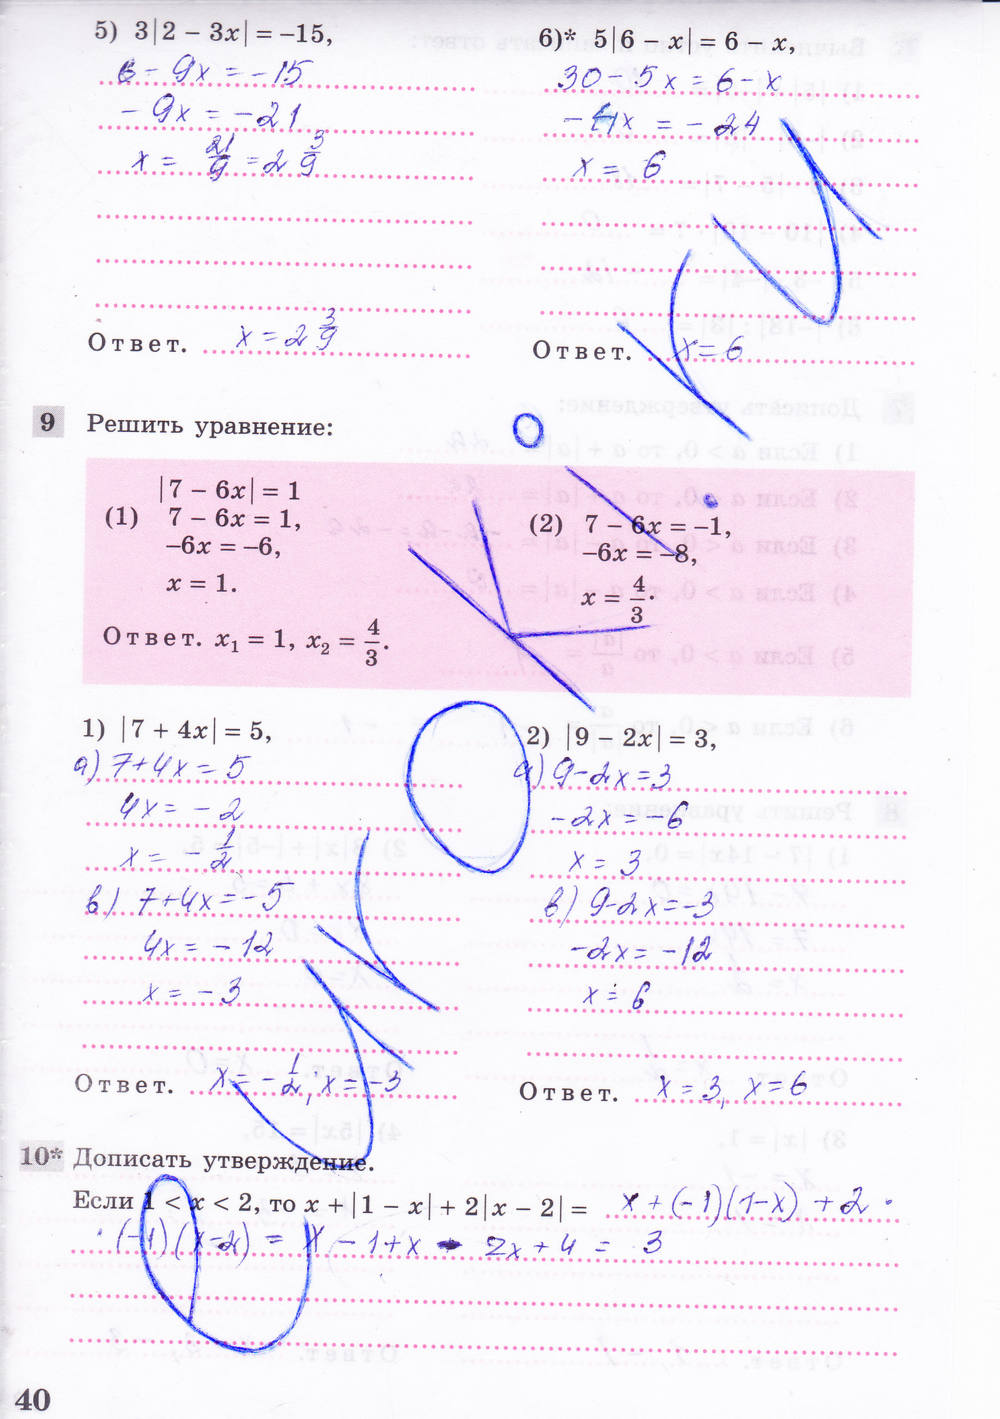 5) 3|2 − 3x| = −15,
6 − 9x = −15
−9x = −21
x = 21/9 = 2 3/9
Ответ. x = 2 3/9
6)* 5|6 − x| = 6 − x,
30 − 5x = 6 − x
−4x = −24
x = 6
Ответ. x = 6
9 Решить уравнение:
|7 − 6x| = 1
(1) 7 − 6x = 1,
−6x = −6,
x = 1.
(2) 7 − 6x = −1,
−6x = −8,
x = 4/3.
Ответ. x₁ = 1, x₂ = 4/3.
1) |7 + 4x| = 5,
а) 7+4x = 5
4x = −2
x = −1/2
в) 7+4x = −5
4x = −12
x = −3
Ответ. x = −1/2, x = −3
2) |9 − 2x| = 3,
а) 9−2x = 3
−2x = −6
x = 3
в) 9−2x = −3
−2x = −12
x = 6
Ответ. x = 3, x = 6
10* Дописать утверждение.
Если 1 < x < 2, то x + |1 − x| + 2|x − 2| = x + (−1)(1−x) + 2 ·
· (−1)(x−2) = x − 1 + x − 2x + 4 = 3
40